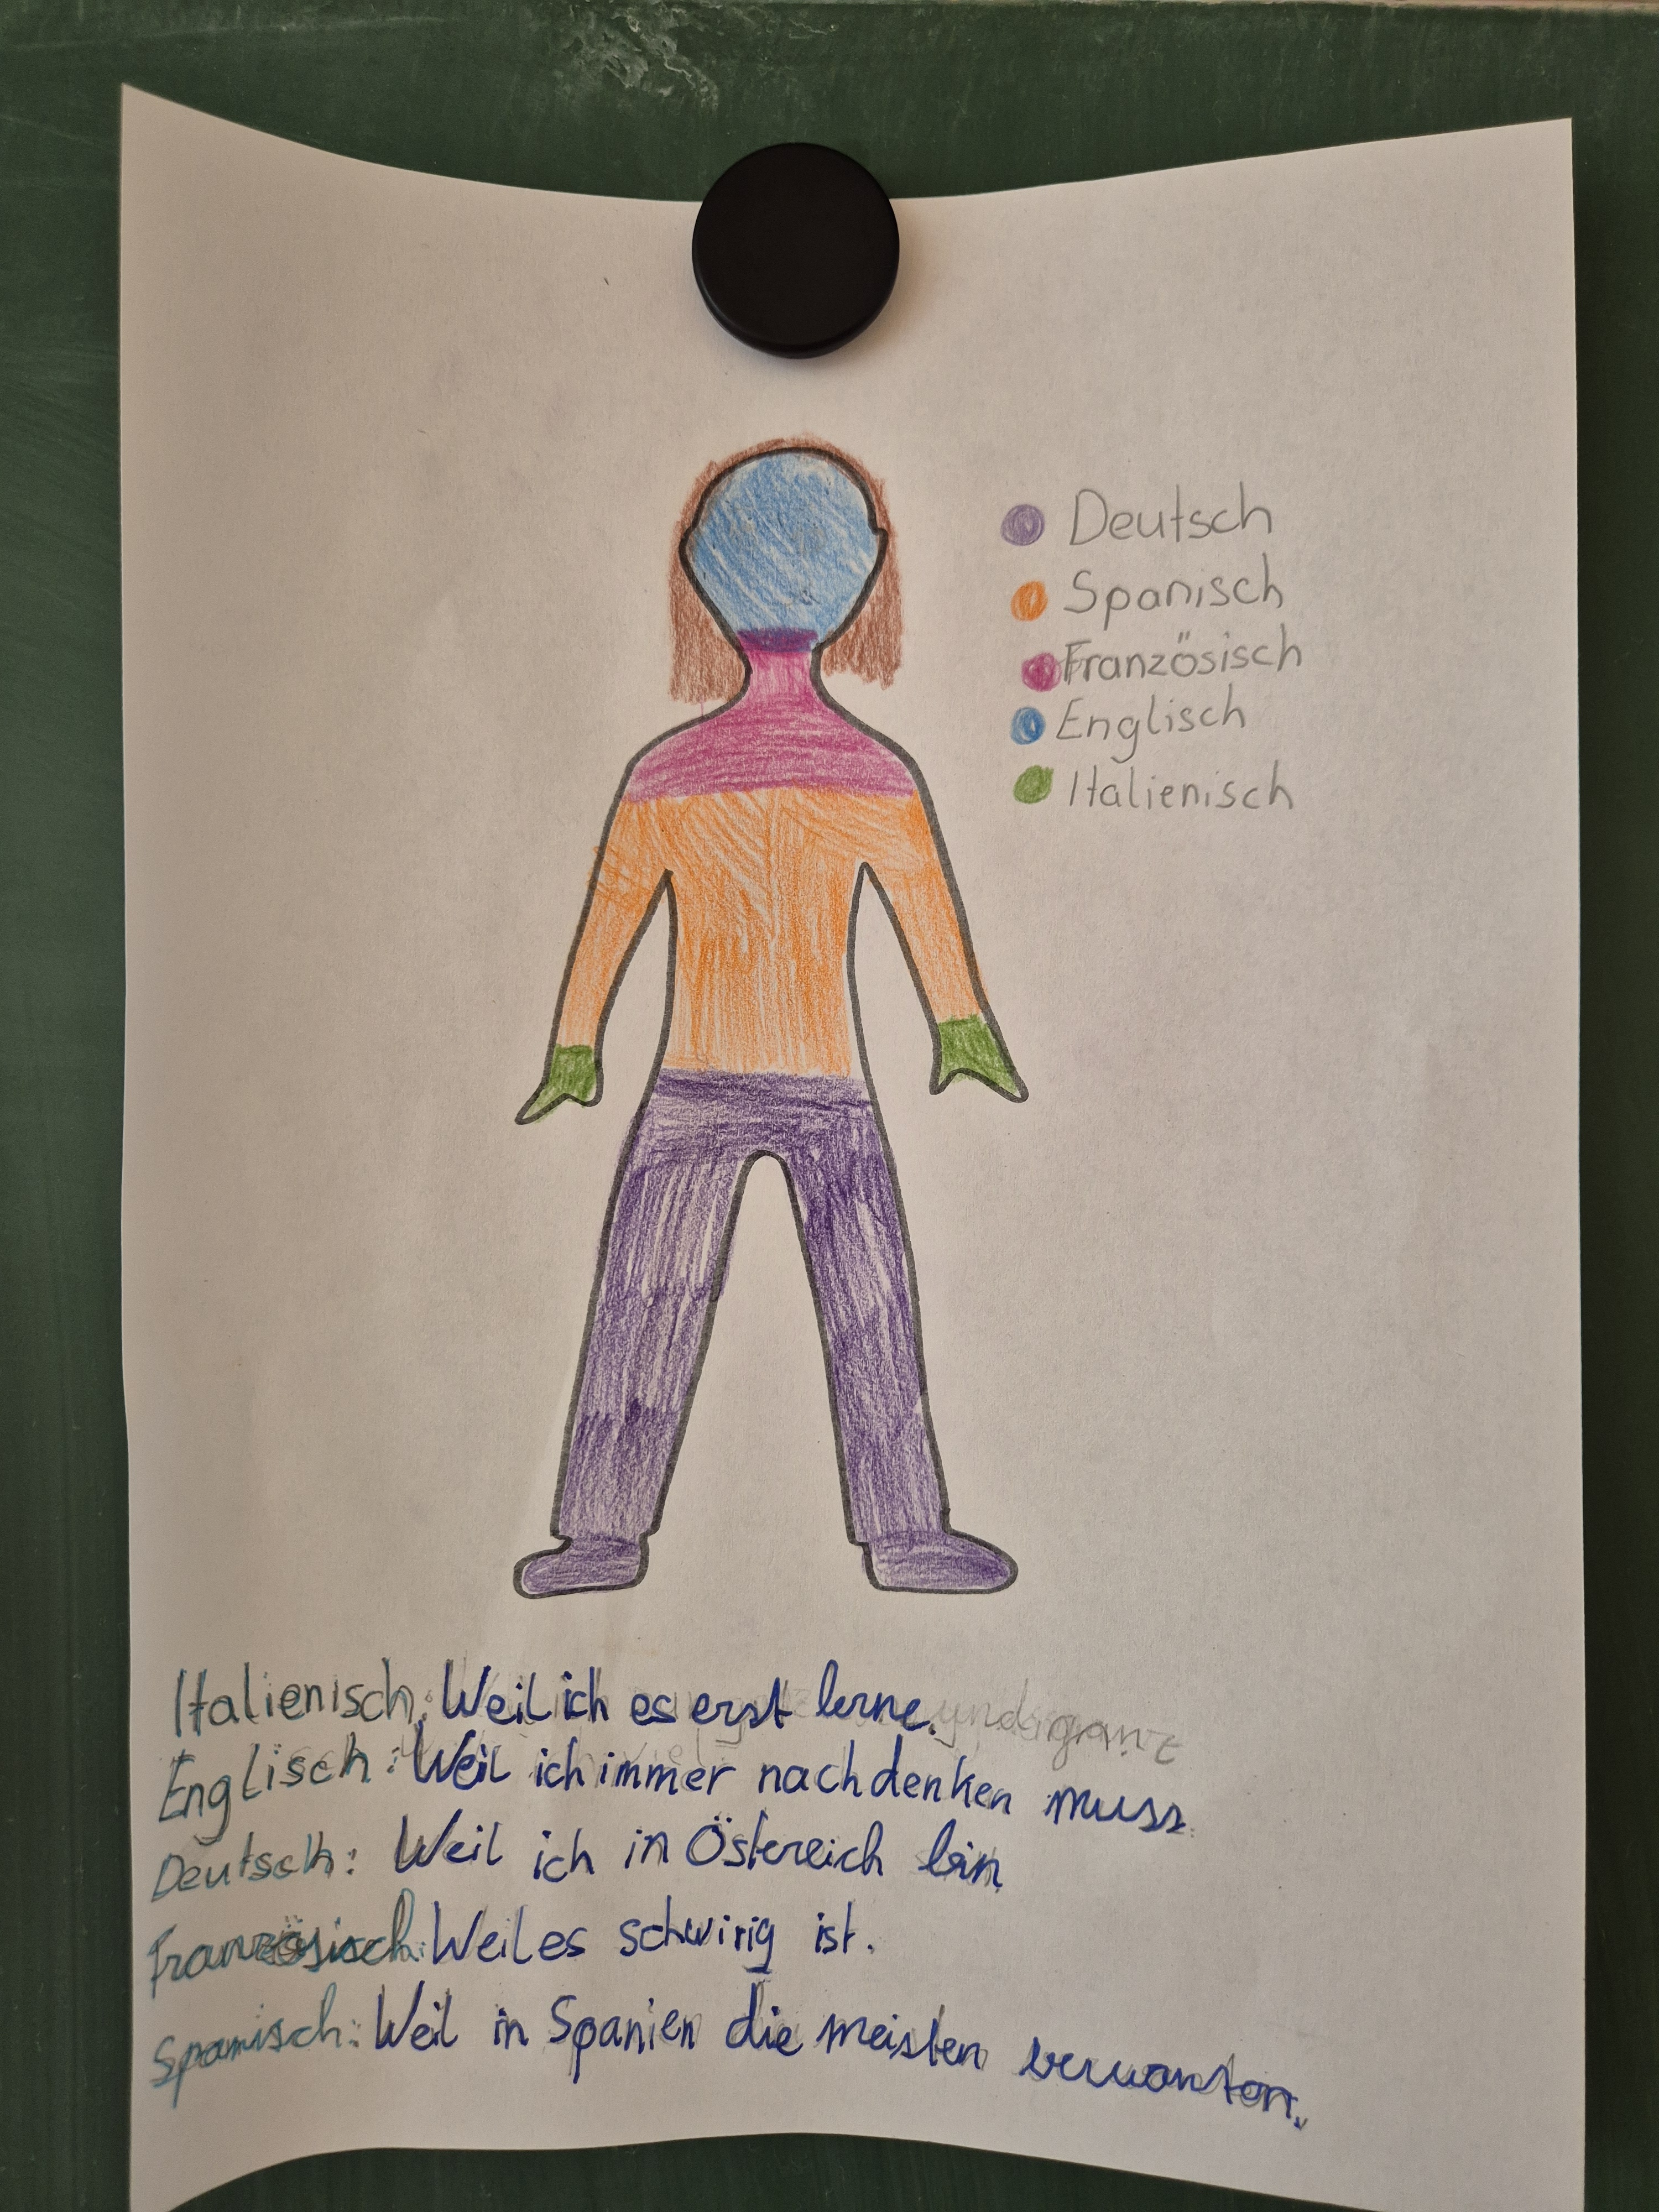 Deutsch
Spanisch
Französisch
Englisch
Italienisch
Italienisch: Weil ich es erst lerne.
Englisch: Weil ich immer nachdenken muss.
Deutsch: Weil ich in Östereich bin
Französisch: Weil es schwirig ist.
Spanisch: Weil in Spanien die meisten verwanten.